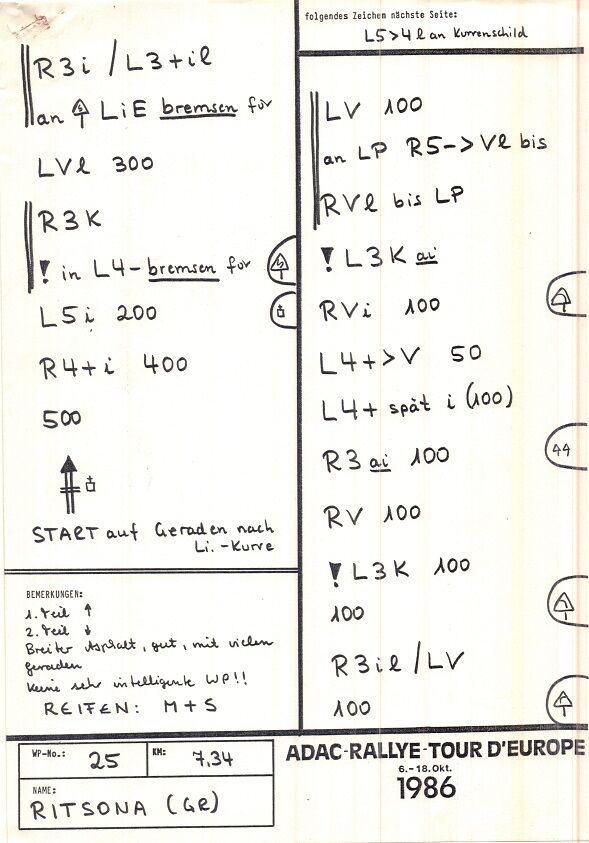 R3i / L3+il
an LiE bremsen for
LVl 300
R3K
! in L4-bremsen for
L5i 200
R4+i 400
500
START auf Geraden nach
Li.-Kurve
BEMERKUNGEN:
1. Teil ↑
2. Teil ↓
Breiter Asphalt, gut, mit vielen
geraden
Keine sehr intelligente WP!!
REIFEN: M+S
folgendes Zeichen nächste Seite:
L5>4l an Kurvenschild
LV 100
an LP R5->Vl bis
RVl bis LP
! L3K ai
RVi 100
L4+>V 50
L4+ spät i (100)
R3 ai 100
44
RV 100
! L3K 100
100
R3il/LV
100
WP-No.: 25 KM: 7,34
NAME:
RITSONA (GR)
ADAC-RALLYE-TOUR D'EUROPE
6.-18.Okt.
1986